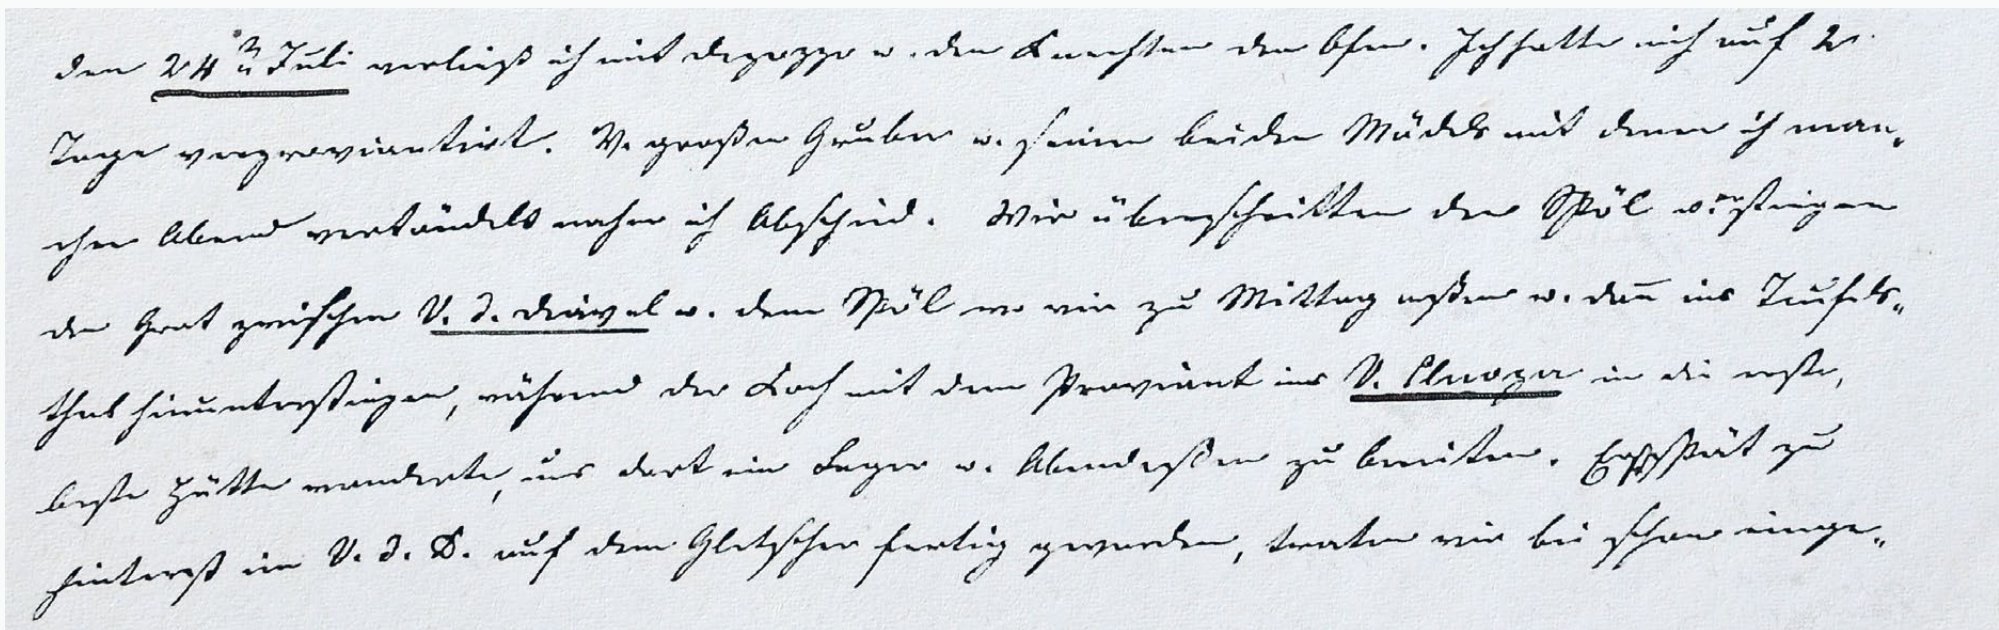 den 24ᵗ Juli verließ ich mit u. den Knechten den Ofen. Ich hatte mich auf 2
Tage verproviantirt. V. großen Gruber u. seinen beiden Mädels mit denen ich man„
chen Abend vertändelt nahm ich Abschied. Wir überschritten den Spöl u. stiegen
den Grat zwischen V. d. Diavel u. dem Spöl wo wir zu Mittag aßen u. dañ ins Teufels„
thal hinunterstiegen, während der Koch mit dem Proviant ins V. Cluoza in die erste,
beste Hütte wanderte, uns dort ein Lager u. Abendessen zu bereiten. Erst spät zu
hinterst im V. d. D. auf dem Gletscher fertig geworden, traten wir bei schon einge„